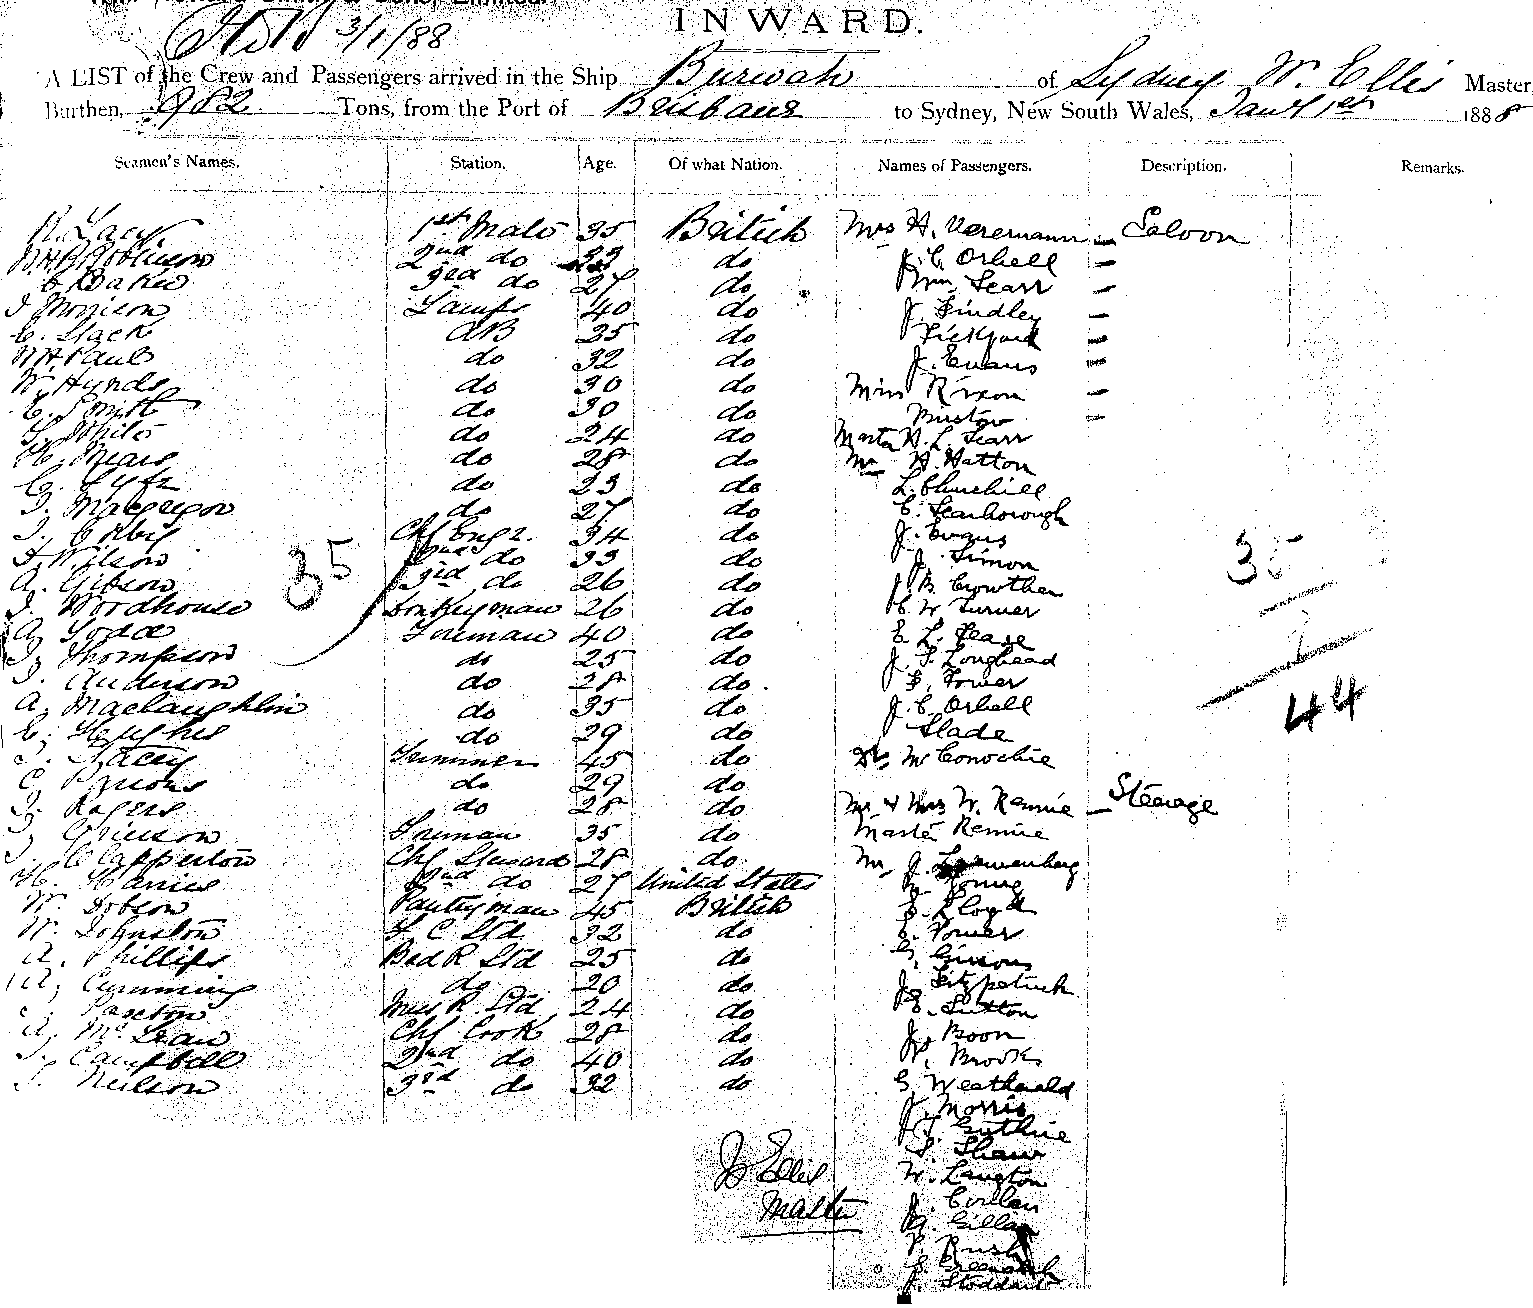 INWARD.
3/1/88
A LIST of the Crew and Passengers arrived in the Ship Burwah of Sydney W. Ellis Master
Burthen, 982 Tons, from the Port of Brisbane to Sydney, New South Wales, Jany 1st 1888
Seamen's Names. Station. Age. Of what Nation. Names of Passengers. Description. Remarks.
R. Lacy 1st Mate 35 British Mrs H. Veremann Saloon
W.H.B. Robinson 2nd do 23 do J. C. Orhell
C. Baker 3rd do 27 do Wm Searr
J. Morrison Lamps 40 do J. Findley
C. Slack AB 35 do Pickford
W.H. Paul do 32 do J. Evans
W. Hynds do 30 do Miss Rixon
C. Smith do 30 do Bristow
T. White do 24 do Master H. L. Searr
H. Mears do 28 do Mr H. Hatton
C. do 23 do L. Churchill
J. Macgregor do 27 do E. Scarborough
J. Chf Engr. 34 do J. Evans
J. Wilson 2nd do 33 do J. Simon
A. Gibson 3rd do 26 do J. B. Crowther
J. Woodhouse Donkeyman 26 do C. W. Turner
A. Todd Fireman 40 do E. L. Pease
J. Thompson do 25 do J. S. Longhead
J. Anderson do 28 do S. Fower
A. Maclaughlin do 35 do J. C. Orhell
C. Hughes do 29 do Slade
T. Stacey Trimmer 45 do Mc Conochie
C. Parsons do 29 do
J. Rogers do 28 do Mr & Mrs W. Rennie Steerage
J. Grierson Fireman 35 do Master Rennie
J. Clapperton Chf Steward 28 do Mr J. Loewenberg
H. Harris 2nd do 27 United States Young
W. Dobson Pantryman 45 British Lloyd
W. Johnston F C Std 32 do Fower
A. Phillips Bed R Std 25 do
A. Cumming do 20 do J. Fitzpatrick
Paxton Mess R. Std 24 do E. Sutton
A. McLean Chf Cook 28 do J. Boon
J. Campbell 2nd do 40 do Brooks
J. Neilson 3rd do 32 do G. Weatherald
J. Morris
J. Guthrie
S. Shaw
W. Langton
J.
Gillan
P. Rush
J. Stoddart
35
35
9
44
W Ellis
Master